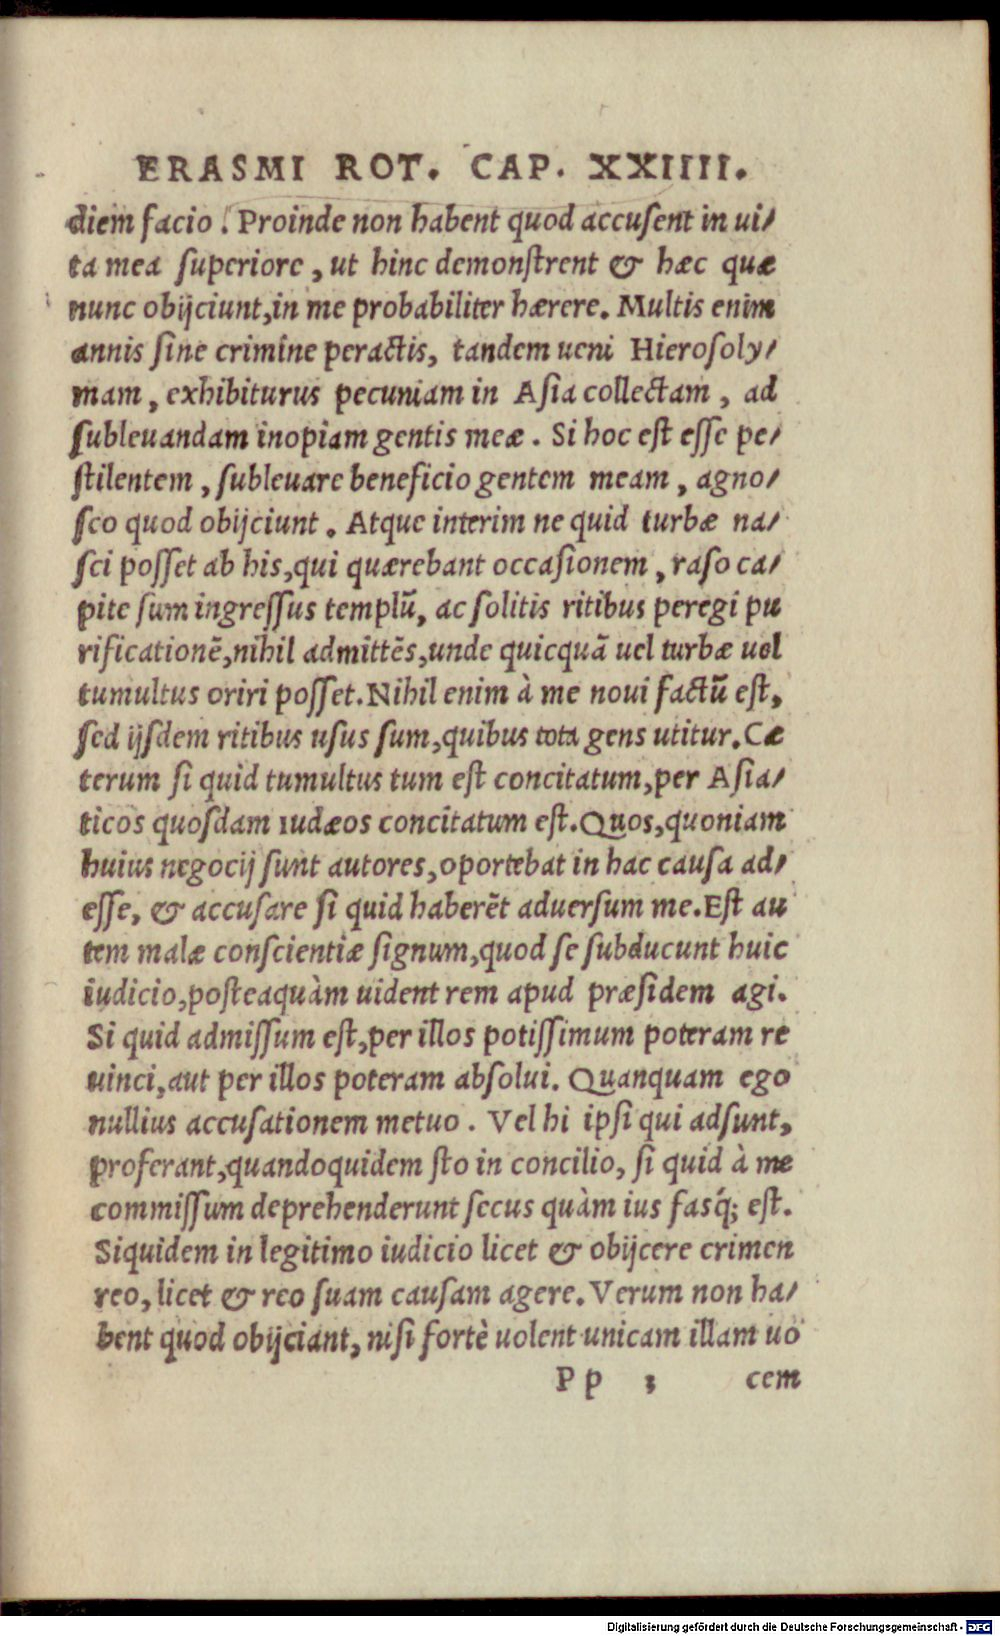 ERASMI ROT. CAP. XXIIII.
diem facio. Proinde non habent quod accuſent in ui/
ta mea ſuperiore, ut hinc demonſtrent & hæc quæ
nunc obijciunt, in me probabiliter hærere. Multis enim
annis ſine crimine peractis, tandem ueni Hieroſoly/
mam, exhibiturus pecuniam in Aſia collectam, ad
ſubleuandam inopiam gentis meæ. Si hoc eſt eſſe pe/
ſtilentem, ſubleuare beneficio gentem meam, agno/
ſco quod obijciunt. Atque interim ne quid turbæ na/
ſci poſſet ab his, qui quærebant occaſionem, raſo ca/
pite ſum ingreſſus templū, ac ſolitis ritibus peregi pu
rificationē, nihil admittēs, unde quicquā uel turbæ uel
tumultus oriri poſſet. Nihil enim à me noui factū eſt,
ſed ijſdem ritibus uſus ſum, quibus tota gens utitur. Cæ
terum ſi quid tumultus tum eſt concitatum, per Aſia/
ticos quoſdam iudæos concitatum eſt. Quos, quoniam
huius negocij ſunt autores, oportebat in hac cauſa ad/
eſſe, & accuſare ſi quid haberēt aduerſum me. Eſt au
tem malæ conſcientiæ ſignum, quod ſe ſubducunt huic
iudicio, poſteaquàm uident rem apud præſidem agi.
Si quid admiſſum eſt, per illos potiſſimum poteram re
uinci, aut per illos poteram abſolui. Quanquam ego
nullius accuſationem metuo. Vel hi ipſi qui adſunt,
proferant, quandoquidem ſto in concilio, ſi quid à me
commiſſum deprehenderunt ſecus quàm ius faſq́; eſt.
Siquidem in legitimo iudicio licet & obijcere crimen
reo, licet & reo ſuam cauſam agere. Verum non ha/
bent quod obijciant, niſi fortè uolent unicam illam uo
Pp 3 cem
Digitalisierung gefördert durch die Deutsche Forschungsgemeinschaft - DFG